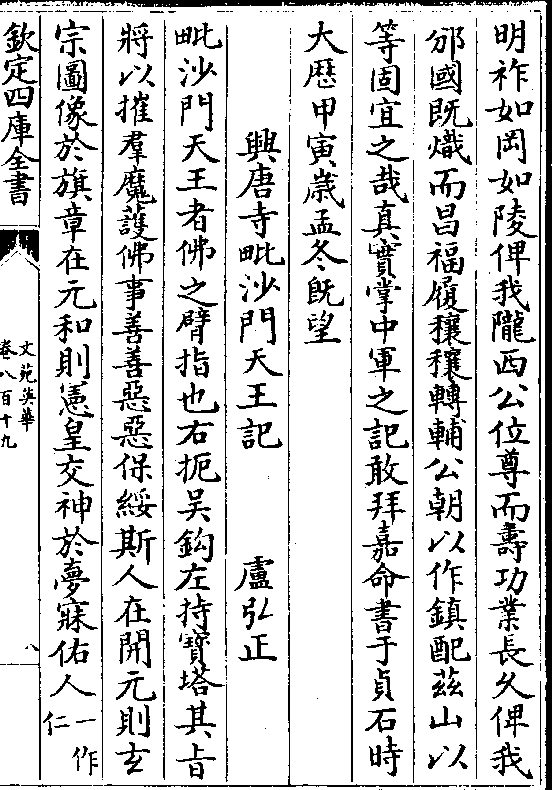 明祚如岡如陵俾我隴西公位尊而壽功業長久俾我
邠國既熾而昌福履穰穰轉輔公朝以作鎮配茲山以
等固宜之哉真實掌中軍之記敢拜嘉命書于貞石時
大厯甲寅嵗孟冬既望
興唐寺毗沙門天王記 盧弘正
毗沙門天王者佛之臂指也右扼吳鈎左持寶塔其㫖
將以摧羣魔護佛事善善惡惡保綏斯人在開元則玄
宗圖像於旗章在元和則憲皇交神於夢寐佑人一作仁
欽定四庫全書
文苑英華
卷八百十九
八